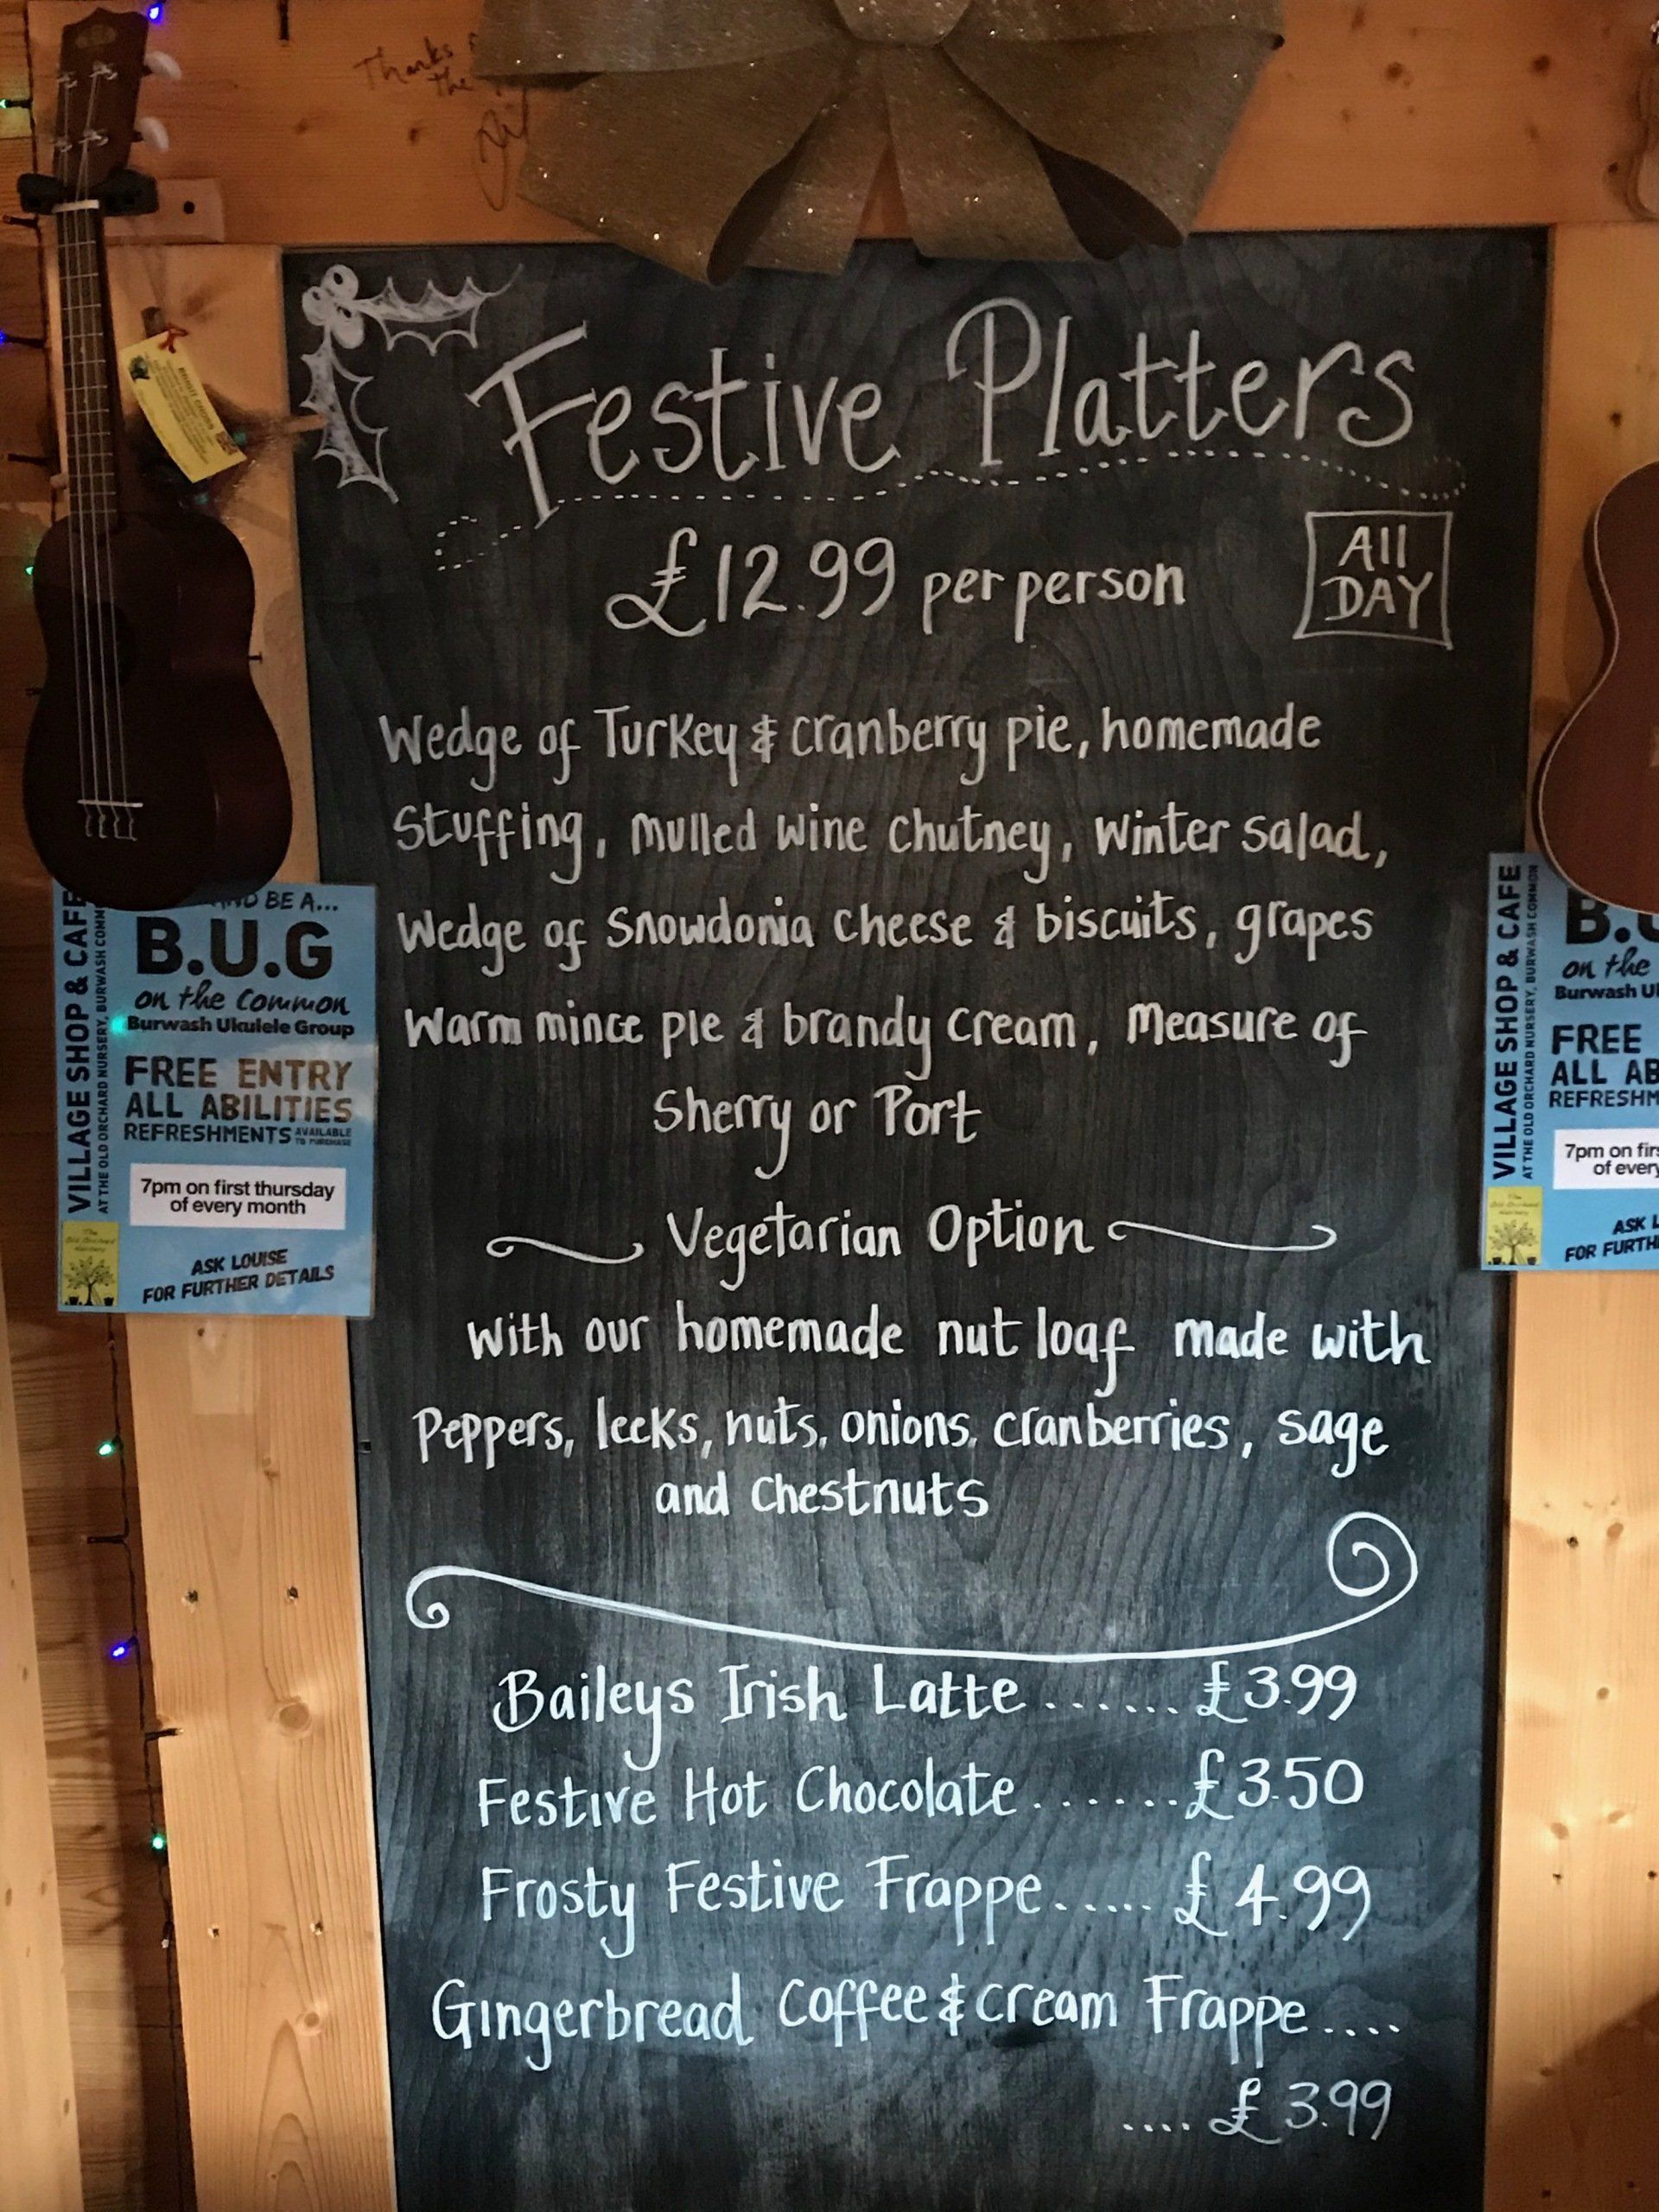 Thanks
the
Festive Platters
£12.99 per person
All
DAY
Wedge of Turkey & cranberry pie, homemade
Stuffing, mulled wine chutney, winter salad,
Wedge of Snowdonia cheese & biscuits, grapes
Warm mince pie & brandy cream, Measure of
Sherry or Port
Vegetarian Option
With our homemade nut loaf made with
Peppers, leeks, nuts, onions, cranberries, sage
and chestnuts
Baileys Irish Latte ...... £3.99
Festive Hot Chocolate ....... £3.50
Frosty Festive Frappe ...... £4.99
Gingerbread Coffee & cream Frappe ....
.... £3.99
VILLAGE SHOP & CAFE
AT THE OLD ORCHARD NURSERY, BURWASH COMM
BE A...
B.U.G
on the Common
Burwash Ukulele Group
FREE ENTRY
ALL ABILITIES
REFRESHMENTS AVAILABLE TO PURCHASE
7pm on first thursday
of every month
The
Old Orchard
Nursery
ASK LOUISE
FOR FURTHER DETAILS
VILLAGE SHOP & CAFE
AT THE OLD ORCHARD NURSERY, BURWASH COMMON
B.
on the
Burwash
FREE
ALL
7pm on
of every
ASK
FOR